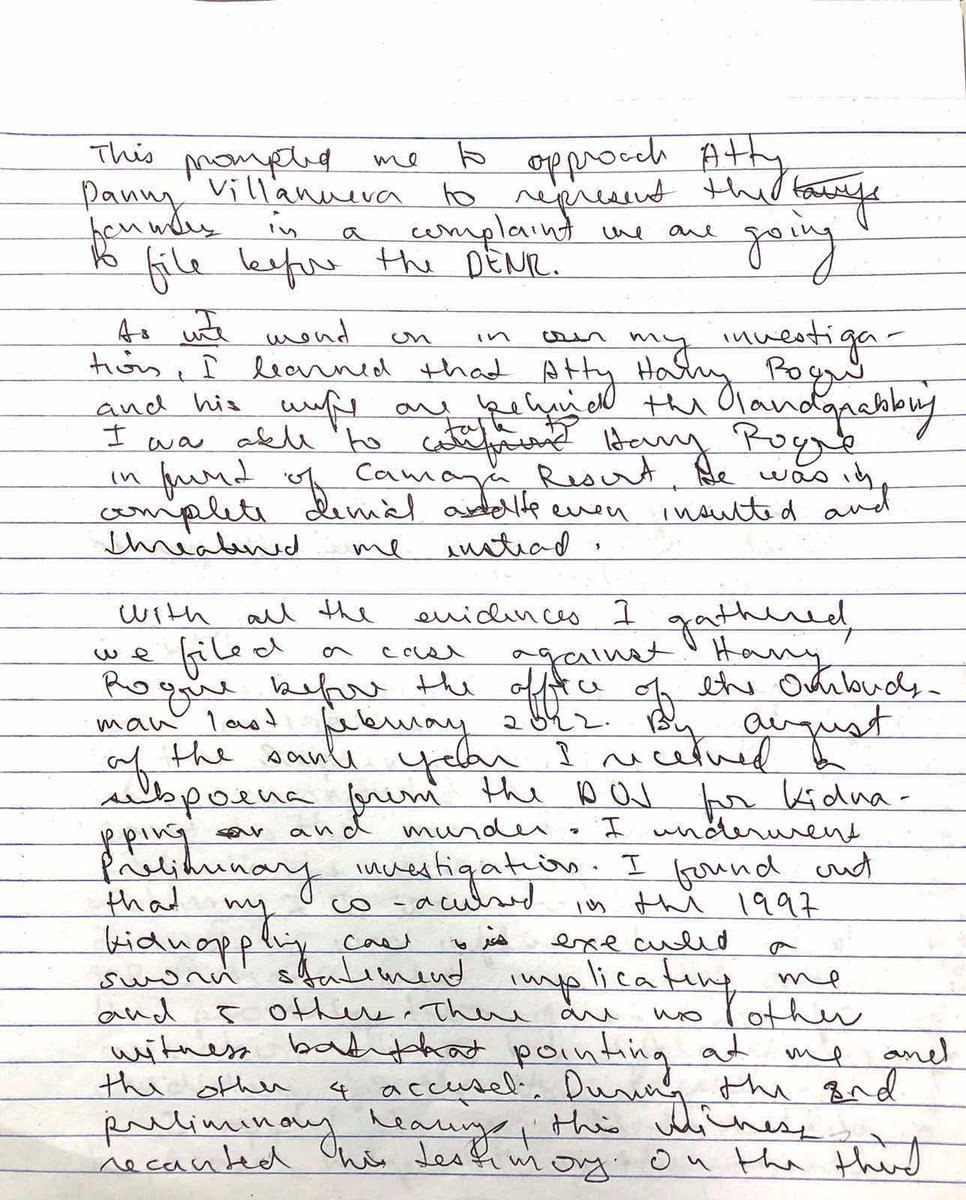 This prompted me to approach Atty
Danny Villanueva to represent the
farmers in a complaint we are going
to file before the DENR.
As I wend on in my investiga-
tion, I learned that Atty Harry Roque
and his wife are behind the landgrabbing
I wa able to talk to Harry Roque
in front of Camaya Resort. He was in
complete denial He even insulted and
threatened me instead.
With all the evidences I gathered,
we filed a case against Harry
Roque before the office of the Ombuds-
man last february 2022. By august
of the same year I received a
subpoena from the DOJ for kidna-
pping and murder. I underwent
Preliminary investigation. I found out
that my co-accused in the 1997
kidnapping case executed a
sworn statement implicating me
and 5 others. There are no other
witness pointing at me and
the other 4 accused. During the 2nd
preliminary hearing, this witness
recanted his testimony. On the third